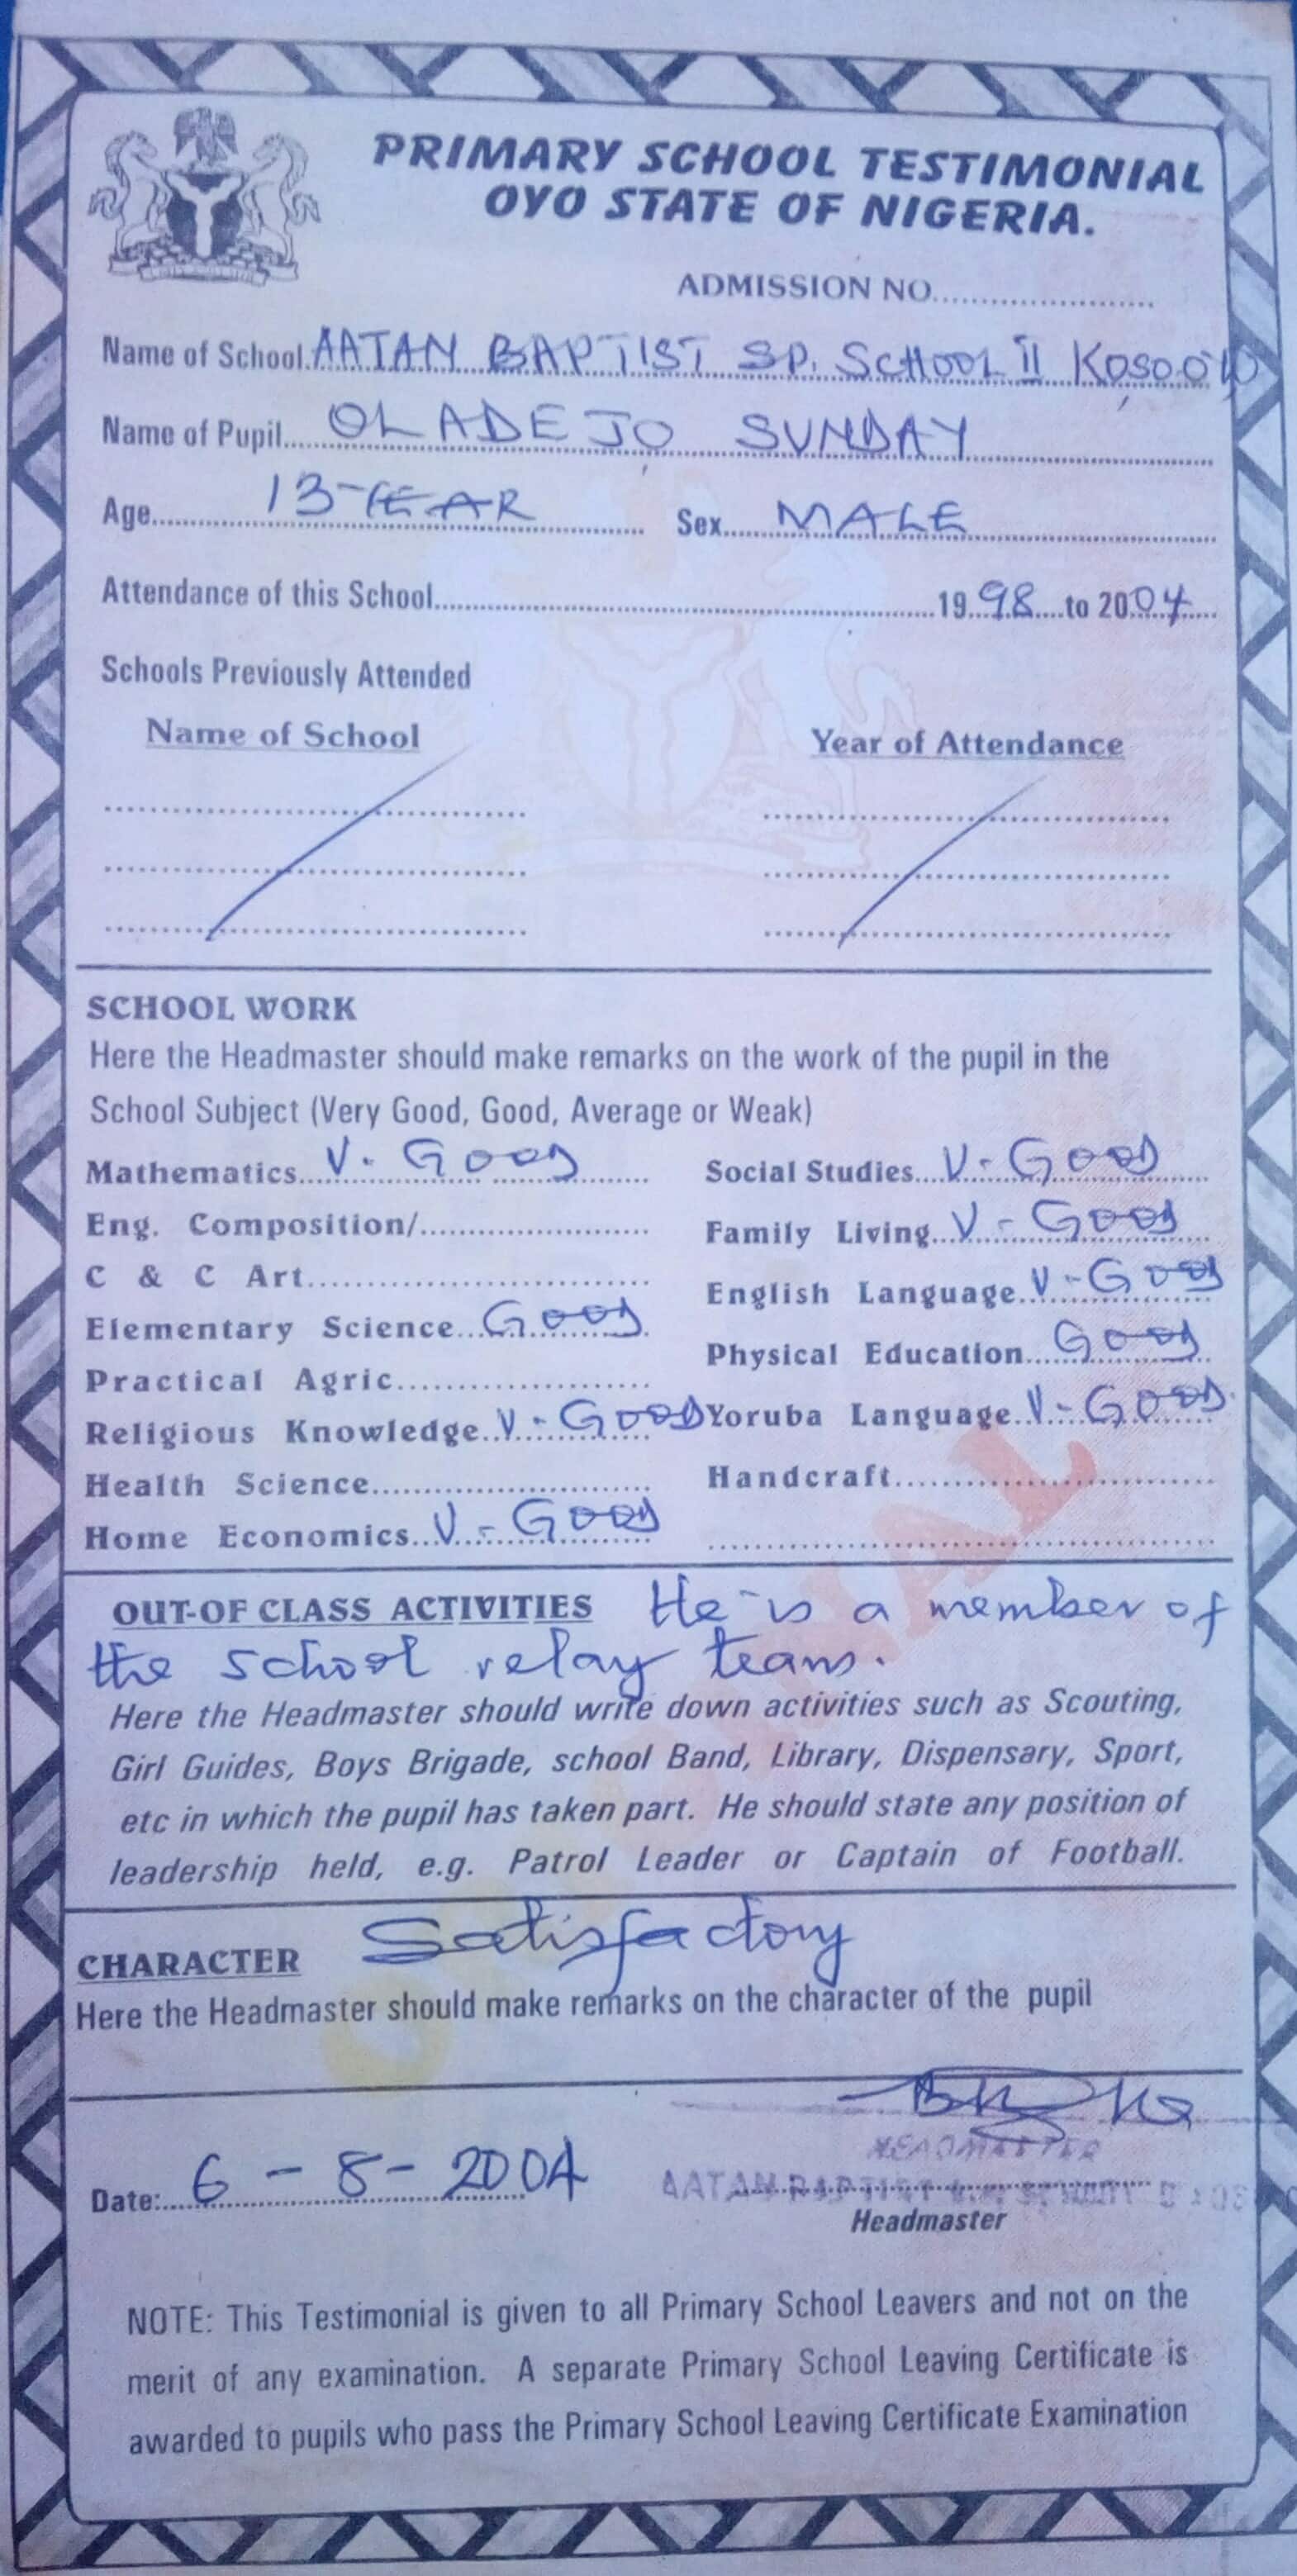 PRIMARY SCHOOL TESTIMONIAL
OYO STATE OF NIGERIA.
ADMISSION NO......................
Name of School. AATAN BAPTIST SP. SCHOOL II KOSO OYO
Name of Pupil..... OLADEJO SUNDAY
Age.......... 13 YEAR Sex..... MALE
Attendance of this School.......... 1998 to 2004
Schools Previously Attended
Name of School Year of Attendance
SCHOOL WORK
Here the Headmaster should make remarks on the work of the pupil in the
School Subject (Very Good, Good, Average or Weak)
Mathematics..... V. GOOD
Eng. Composition/..........
C & C Art..........
Elementary Science... GOOD
Practical Agric..........
Religious Knowledge.. V - GOOD
Health Science..........
Home Economics... V - GOOD
Social Studies.... V - GOOD
Family Living... V - GOOD
English Language.. V - GOOD
Physical Education.... GOOD
Yoruba Language.. V - GOOD
Handcraft..........
OUT-OF CLASS ACTIVITIES He is a member of
the school relay team.
Here the Headmaster should write down activities such as Scouting,
Girl Guides, Boys Brigade, school Band, Library, Dispensary, Sport,
etc in which the pupil has taken part. He should state any position of
leadership held, e.g. Patrol Leader or Captain of Football.
CHARACTER Satisfactory
Here the Headmaster should make remarks on the character of the pupil
HEADMASTER
AATAN BAPTIST
Date:.... 6 - 8 - 2004
Headmaster
NOTE: This Testimonial is given to all Primary School Leavers and not on the
merit of any examination. A separate Primary School Leaving Certificate is
awarded to pupils who pass the Primary School Leaving Certificate Examination